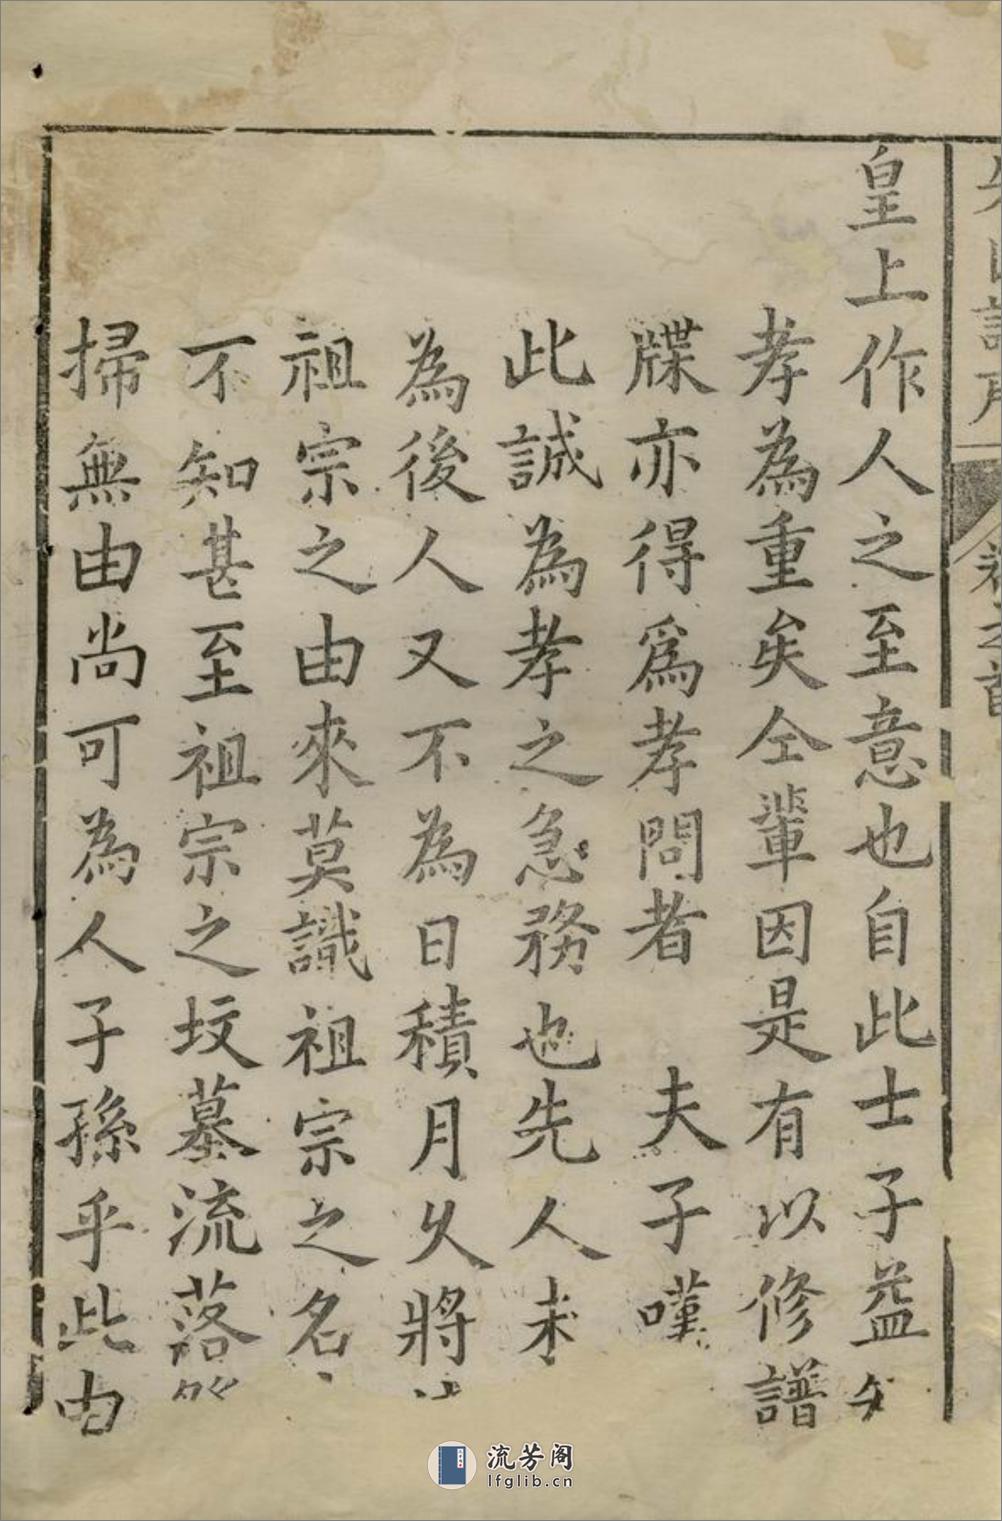 皇上作人之至意也自此士子益知
孝為重矣仝輩因是有以修譜
牒亦得爲孝問者　夫子嘆
此誠為孝之急務也先人未
為後人又不為日積月久將
祖宗之由來莫識祖宗之名
不知甚至祖宗之坟墓流落
掃無由尚可為人子孫乎此由
卷之首
流芳阁
lfglib.cn